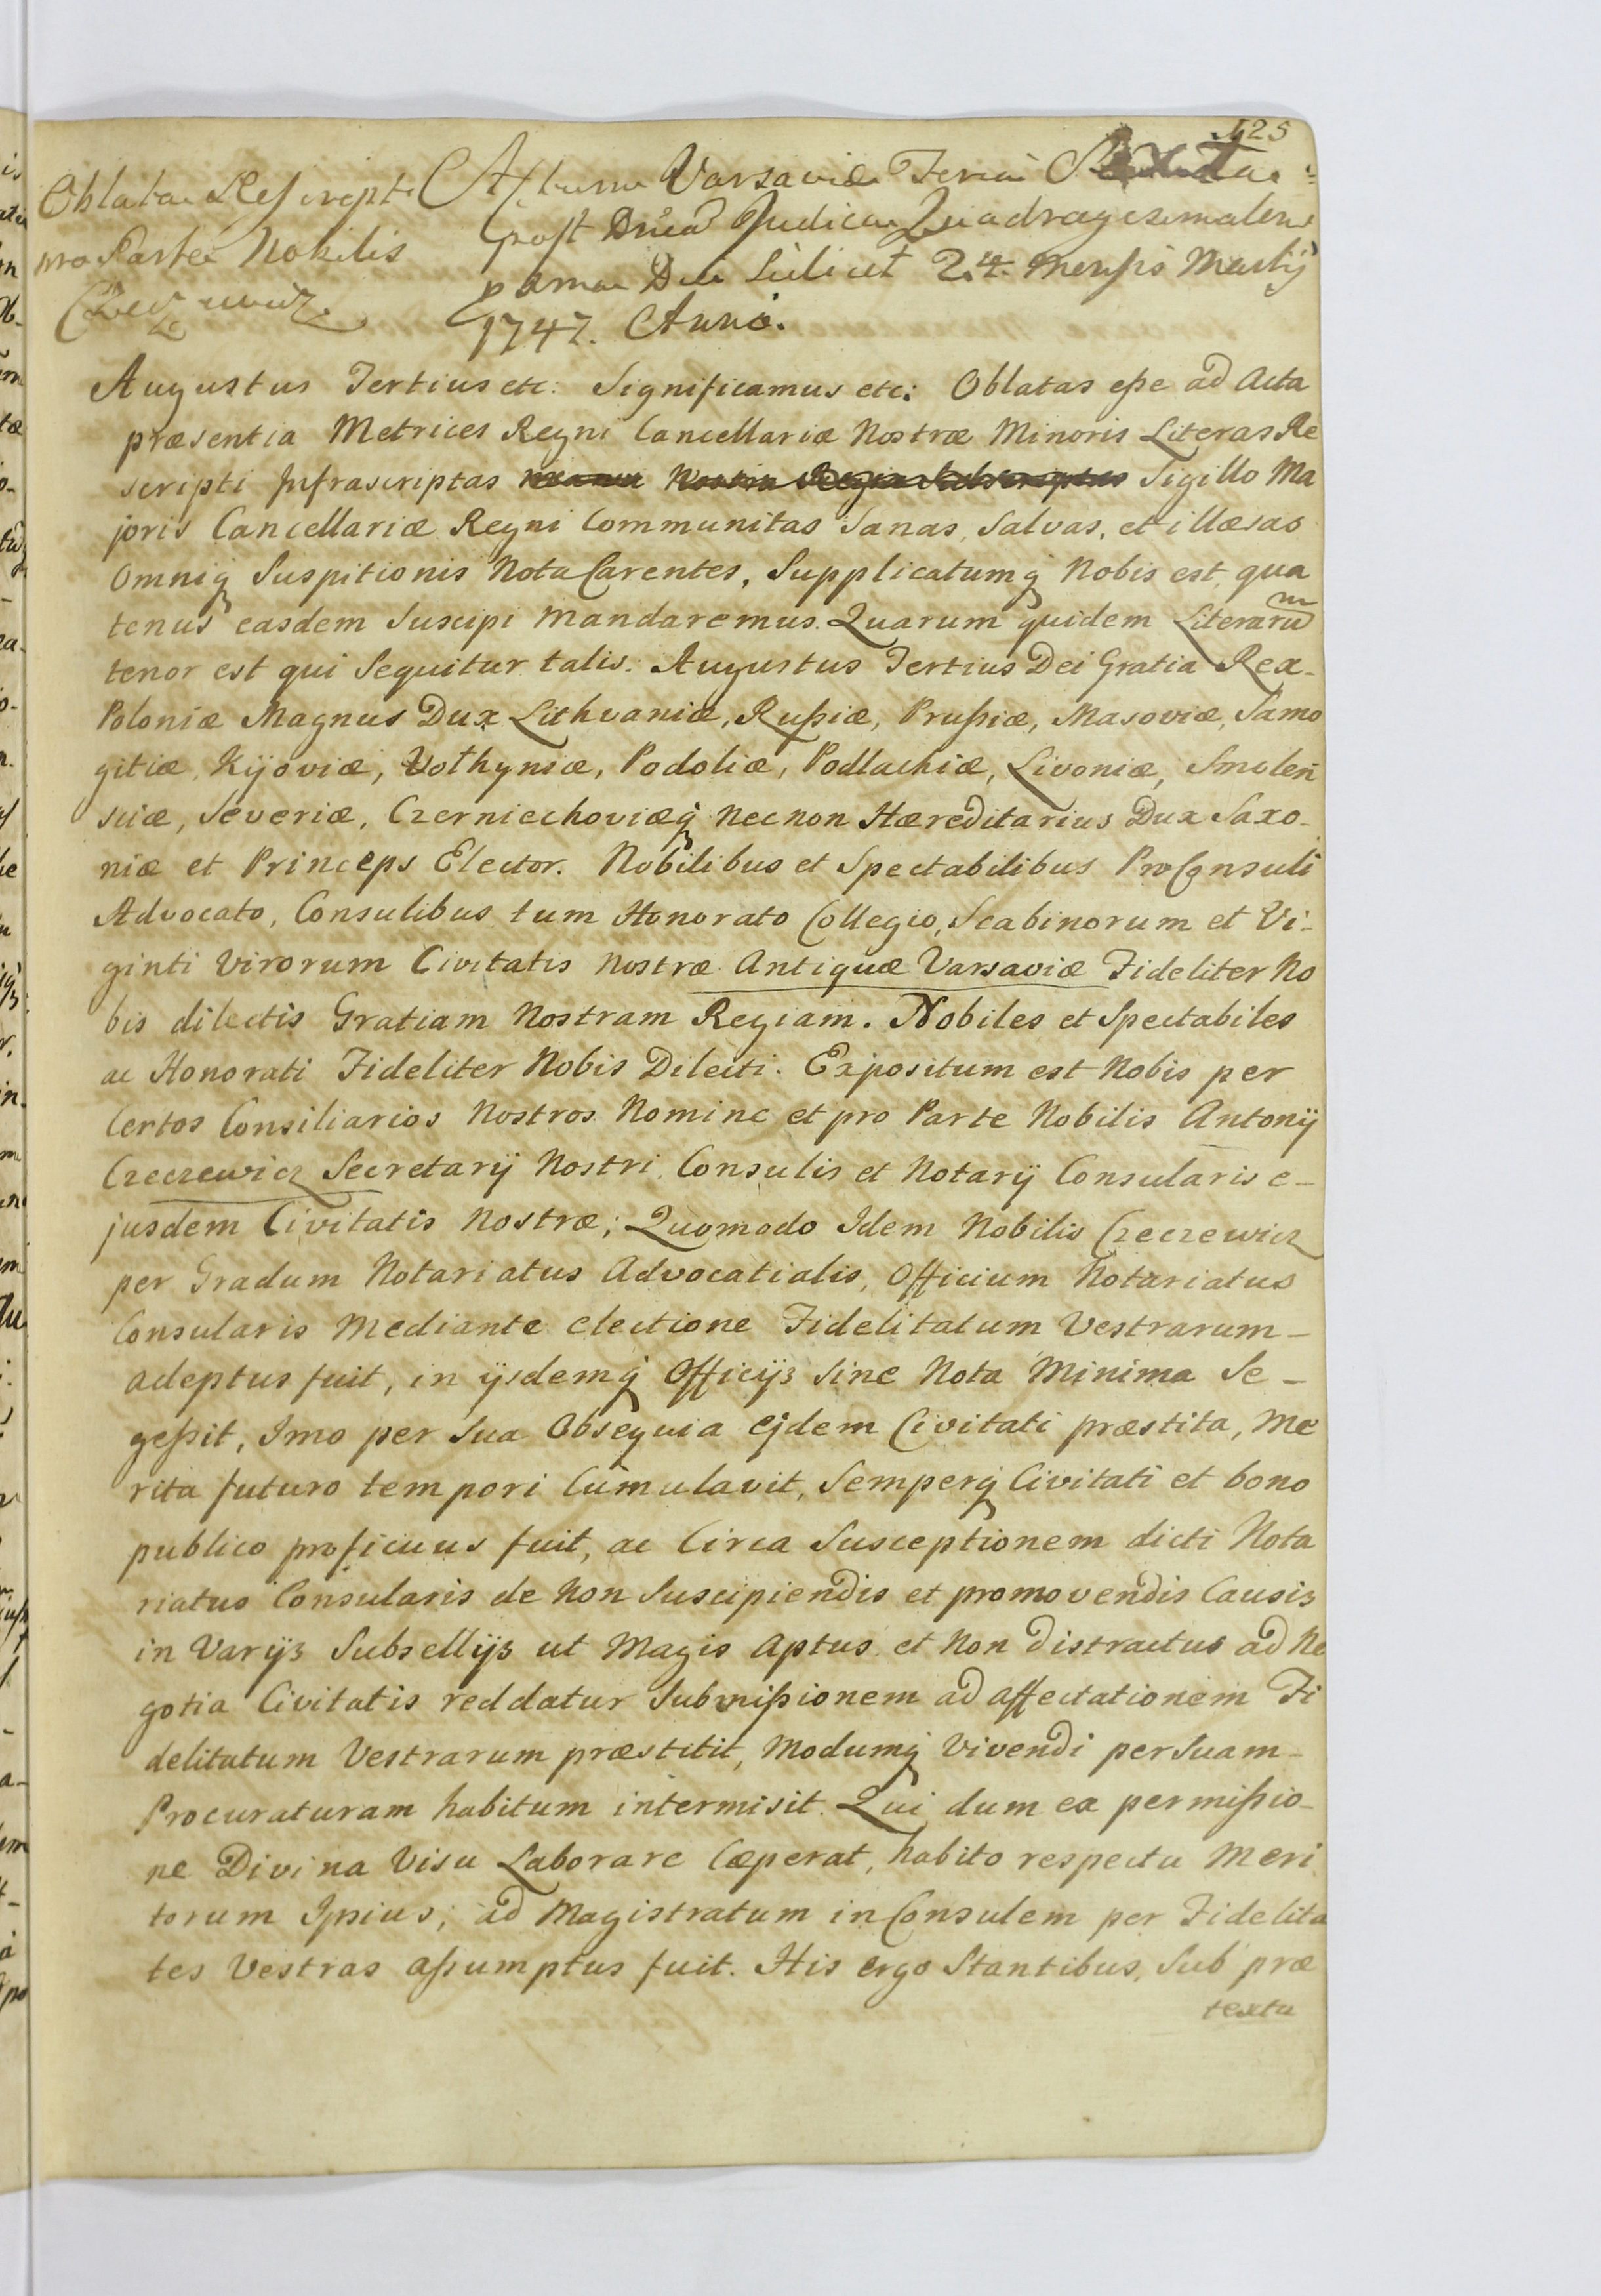 125
Oblata Rescripti
pro Parte Nobilis
Czeczewicz.
Actum Varsaviæ Feria Sexta
post Dnicā Judica Quadragesimalem
prima Die Scilicet 24. Mensis Martij
1747. Anno.
Augustus Tertius etc: Significamus etc: Oblatas eße ad Acta
præsentia Metrices Regni Cancellariæ Nostræ Minoris Literas Re
scripti Infrascriptas Sigillo Ma
joris Cancellariæ Regni Communitas Sanas, Salvas, et illæsas
Omniq̃ Suspitionis Nota Carentes, Supplicatumq̃ Nobis est, qua
tenus easdem Suscipi Mandaremus. Quarum quidem Literarum
tenor est qui Sequitur talis. Augustus Tertius Dei Gratia Rex
Poloniæ Magnus Dux Lithvaniæ, Rußiæ, Prußiæ, Masoviæ, Samo
gitiæ, Kijoviæ, Volhyniæ, Podoliæ, Podlachiæ, Livoniæ, Smolen
sciæ, Severiæ, Czerniechoviæq̃ necnon Hæreditarius Dux Saxo-
niæ et Princeps Elector. Nobilibus et Spectabilibus ProConsuli
Advocato, Consulibus tum Honorato Collegio, Scabinorum et Vi-
ginti Virorum Civitatis Nostræ Antiquæ Varsaviæ Fideliter No
bis dilectis Gratiam Nostram Regiam. Nobiles et Spectabiles
ac Honorati Fideliter Nobis Dilecti. Expositum est Nobis per
Certos Consiliarios Nostros Nomine et pro Parte Nobilis Antonij
Czeczewicz Secretarij Nostri, Consulis et Notarij Consularis e-
jusdem Civitatis Nostræ; Quomodo Idem Nobilis Czeczewicz
per Gradum Notariatus Advocatialis, Officium Notariatus
Consularis Mediante electione Fidelitatum Vestrarum-
adeptus fuit, in ijsdemq̃ Officijs Sine Nota Minima Se-
geßit, Imo per Sua Obsequia ejdem Civitati præstita, Me
rita futuro tempori Cumulavit, Semperq̃ Civitati et bono
publico proficuus fuit, ac Circa Susceptionem dicti Nota
riatus Consularis de Non Suscipiendis et promovendis Causis
in Varijs Subsellijs ut Magis Aptus et Non distractus ad Ne
gotia Civitatis reddatur Submißionem ad affectationem Fi
delitatum Vestrarum præstitit, Modumq̃ Vivendi per Suam-
Procuraturam habitum intermisit. Qui dum ex permißio-
ne Divina Visu Laborare Cæperat, habito respectu Meri
torum Ipsius; ad Magistratum in Consulem per Fidelita
tes Vestras aßumptus fuit. His ergo Stantibus, Sub præ
textu